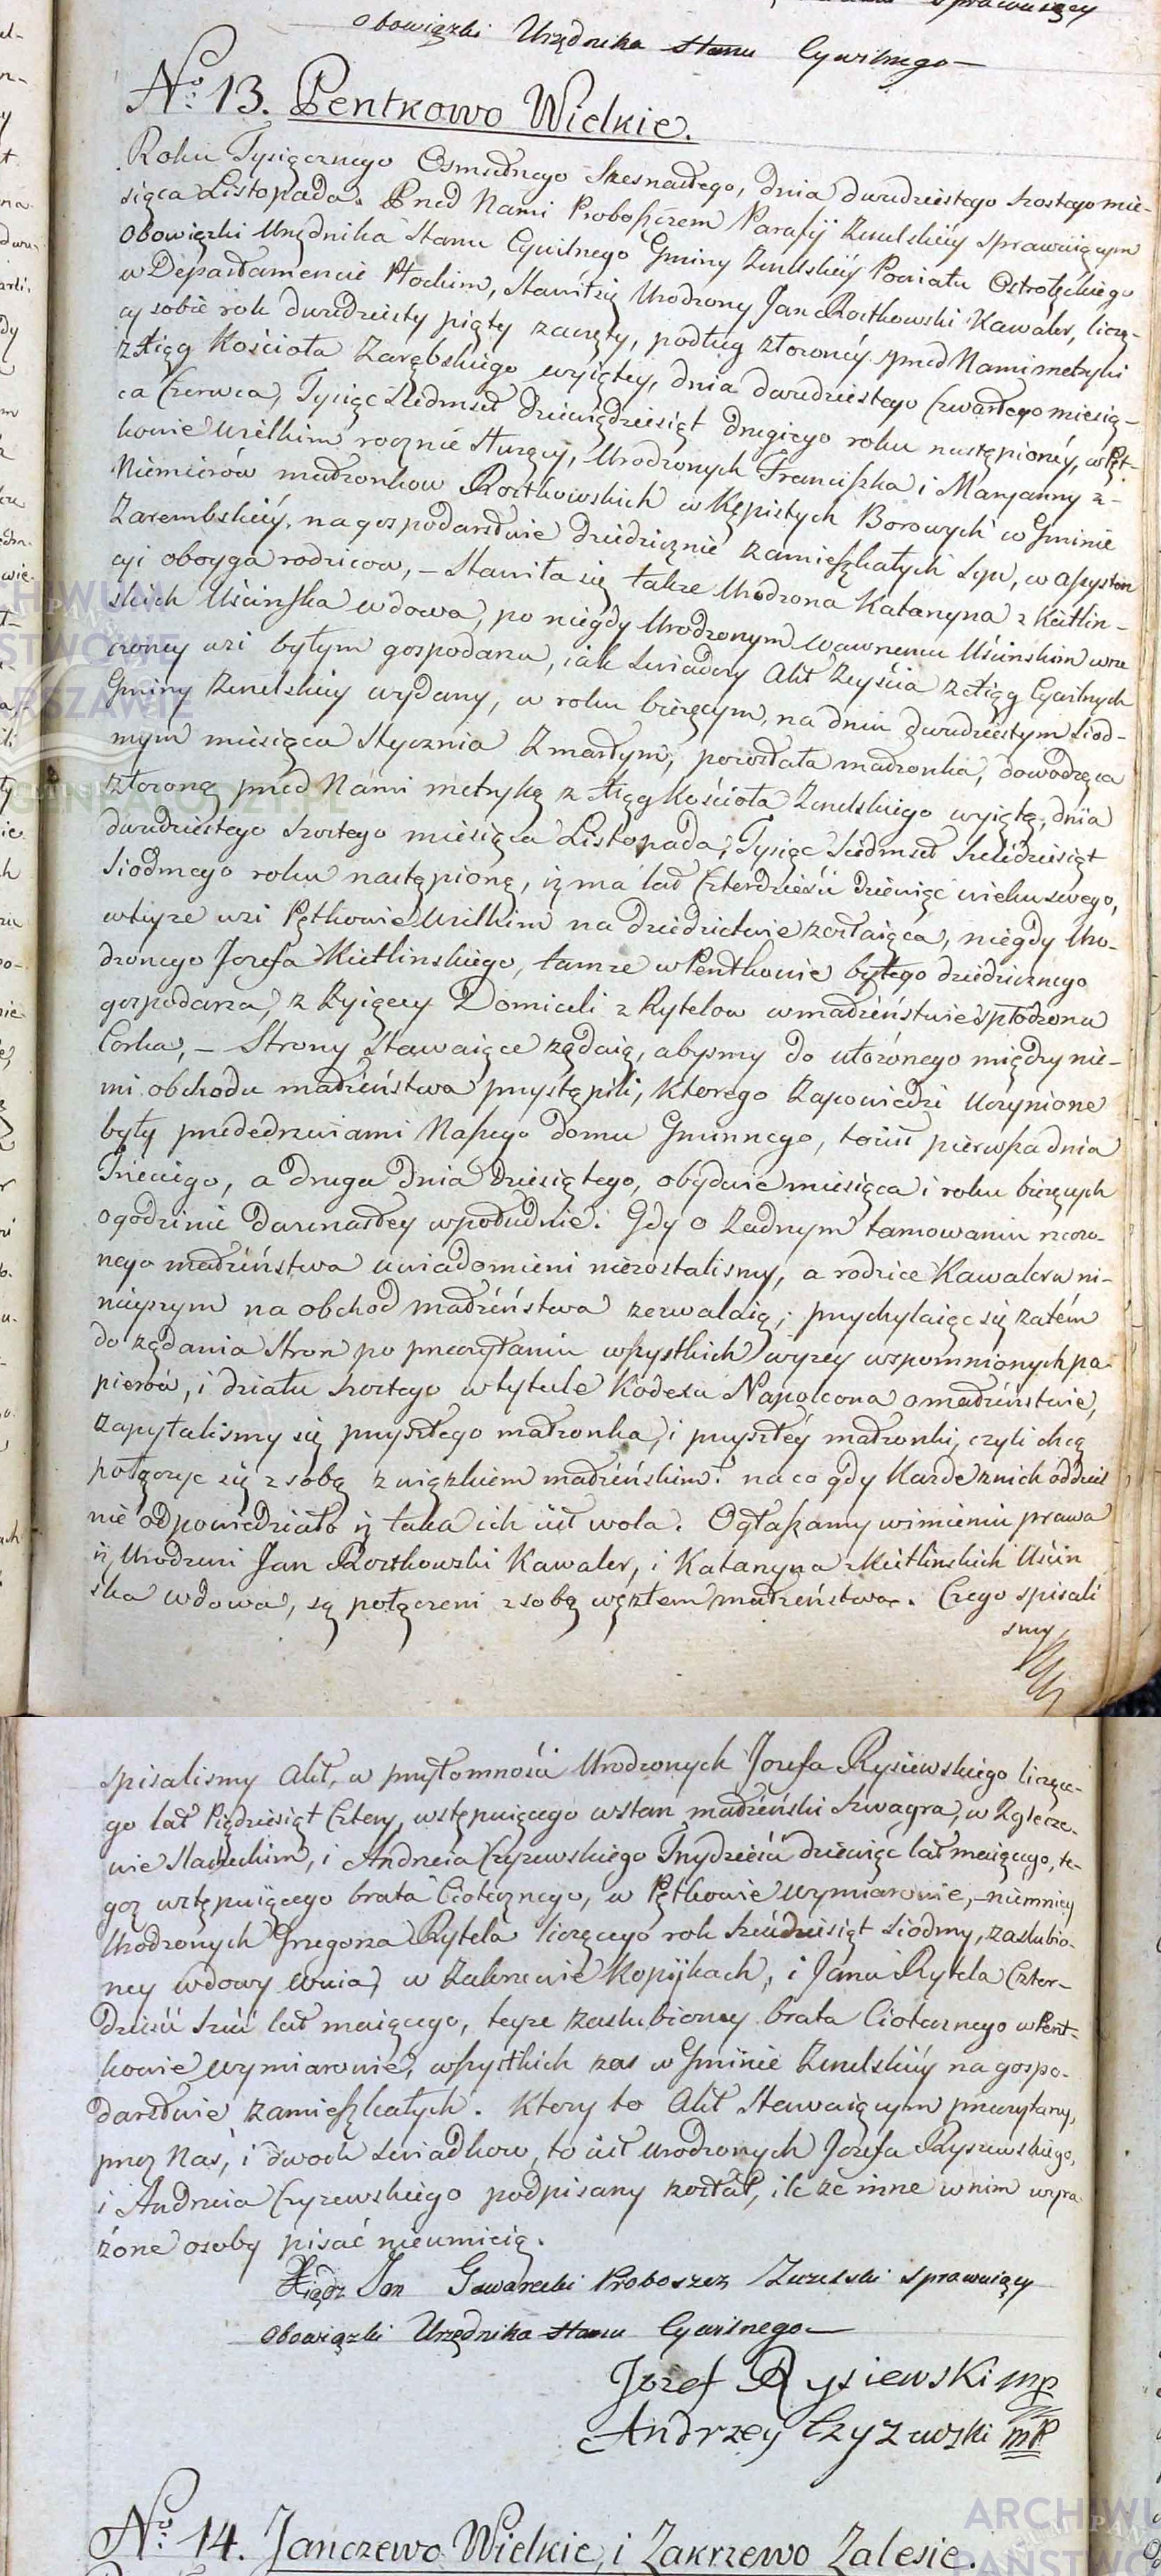 sprawuiący
Obowiązki Urzędnika Stanu Cywilnego
No: 13. Pentkowo Wielkie.
Roku Tysiącznego Osmsetnego Szesnastego, dnia dwudziestego szostego mie-
siąca Listopada. Pred Nami Proboszczem Parafij Zuzelskiéy sprawuiącym
Obowiązki Urzędnika Stanu Cywilnego Gminy Zuzelskiéy Powiatu Ostrołęckiego
w Departamencie Płockim, Stawił się Urodzony Jan Rostkowski Kawaler, liczą-
cy sobie rok dwudziesty piąty zaczęty, podług złozonéy pred Nami metryki
z Xiąg Kościoła Zarębskiego wyiętey, dnia dwudziestego czwartego miesią-
ca Czerwca, Tysiąc Siedmset Dziewiędziesiąt drugiego roku nastąpionéy, w Pęt-
kowie Wielkim rocznie służący, Urodzonych Franciszka i Maryanny z
Niemierów małzonkow Rostkowskich w Kępistych Borowych w Gminie
Zarembskiéy, na gospodarstwie dziedzicznie zamieszkałych Syn, w assysten
cyi oboyga rodzicow, – Stawiła się takze Urodzona Katarzyna z Kietlin-
skich Uścinska wdowa, po niegdy Urodzonym Wawrzencu Uścinskim w rze
czoney wsi byłym gospodarzu, iak swiadczy Akt Zeyścia z Xiąg Cywilnych
Gminy Zuzelskiey wydany, w roku bieżącym, na dniu dwudziestym siod-
mym miesiąca Stycznia Zmarłym, pozostała małzonka, dowodząca
złozoną pred Nami metryką z Xiąg Kościoła Zuzelskiego wyiętą, dnia
dwudziestego szostego miesiąca Listopada, Tysiąc Siedmset Sześdziesiąt
Siodmego roku nastąpioną, iz ma lat Czterdzieści dziewięć wieku swego,
w teyze wsi Pętkowie Wielkim na dziedzictwie zostaiąca, niegdy Uro-
dzonego Jozefa Kietlinskiego, tamze w Pentkowie byłego dziedzicznego
gospodarza, z zyiącey Domiceli z Rytelow w małzeństwie spłodzona
Corka, – Strony Stawaiące ządaią, abysmy do ułozónego między nie-
mi obchodu małzeństwa prystąpili, ktorego Zapowiedzi Uczynione
były predede drzwiami Naszego domu Gminnego, to iest pierwsza dnia
Trzeciego, a druga dnia dziesiątego, obydwie miesiąca i roku bieżących
o godzinie dwunastey w południe. Gdy o Zadnym tamowaniu rzeczo-
nego małzeństwa uwiadomieni niezostalismy, a rodzice Kawalera ni-
nieyszym na obchod małzeństwa zezwalaią; przychylaiąc się zatém
do ządania Stron po preczytaniu wszystkich wyzey wspomnionych pa
pierów, i działu szostego w tytule Kodexu Napoleona o małzeństwie,
Zapytalismy się pryszłego małzonka, i pryszłéy małzonki, czyli chcą
połączyc się z sobą związkiem małzeńskim? na co gdy Kazde z nich oddziel
nie odpowiedziało iz taka ich iest wola. Ogłaszamy w imieniu prawa
iz Urodzeni Jan Rostkowski Kawaler, i Katarzyna z Kietlinskich Uścin
ska wdowa, są połączeni z sobą węzłem małzeństwa. Czego spisali
smy
spisalismy Akt, w prytomności Urodzonych Jozefa Rysiewskiego liczące-
go lat Piędziesiąt Cztery, wstępuiącego w stan małzeński Szwagra, w Zglecze-
wie Slacheckim, i Andrzeia Czyzewskiego Trzydzieści dziewięć lat maiącego, te-
goz wstępuiącego brata Ciotecznego, w Pętkowie wymiarowie, – niemniey
Urodzonych Grzegorza Rytela liczącego rok sześdziesiąt siodmy, zaslubio-
ney wdowy wuia, w Zakrzewie Kopijkach, i Jana Rytela Czter-
dzieści sześć lat maiącego, teyze zaslubioney brata Ciotecznego w Pent-
kowie wymiarowie, wszystkich zas w Gminie Zuzelskiéy na gospo-
darstwie zamieszkałych. Ktory to Akt Stawaiącym preczytany,
prez Nas, i dwoch swiadkow, to iest Urodzonych Jozefa Rysiewskiego,
i Andrzeia Czyzewskiego podpisany został, ile ze inne w nim wyra
zóne osoby pisać nieumieią.
Xiądz Jan Gawarecki Proboszcz Zuzelski sprawuiący
Obowiązki Urzędnika Stanu Cywilnego
Jozef Rysiewski mp
Andrzey Czyzewski mp
No: 14. Janczewo Wielkie, i Zakrzewo Zalesie.